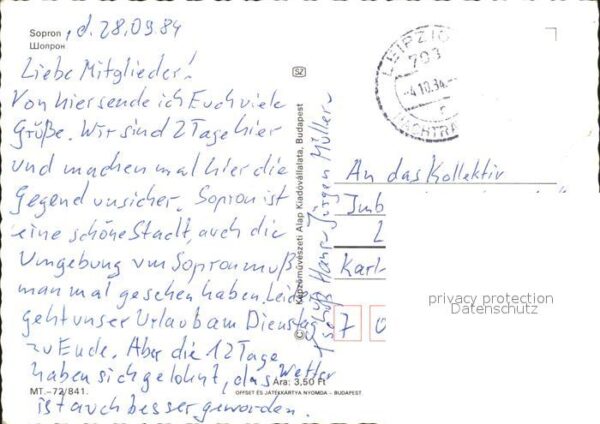 Sopron, d. 28.09.84
Шопрон
Liebe Mitglieder!
Von hier sende ich Euch viele
Grüße. Wir sind 2 Tage hier
und machen mal hier die
Gegend unsicher. Sopron ist
eine schöne Stadt, auch die
Umgebung von Sopron muß
man mal gesehen haben. Leider
geht unser Urlaub am Dienstag
zu Ende. Aber die 12 Tage
haben sich gelohnt, das Wetter
ist auch besser geworden.
Hans-Jürgen Müller
MT.-72/841.
Ára: 3,50 Ft
OFFSET ÉS JÁTÉKKÁRTYA NYOMDA - BUDAPEST.
SZ
© Képzőművészeti Alap Kiadóvállalata, Budapest
LEIPZIG
703
-4.10.84.-
An das Kollektiv
Imb
L
Karl-
7 0
privacy protection
Datenschutz